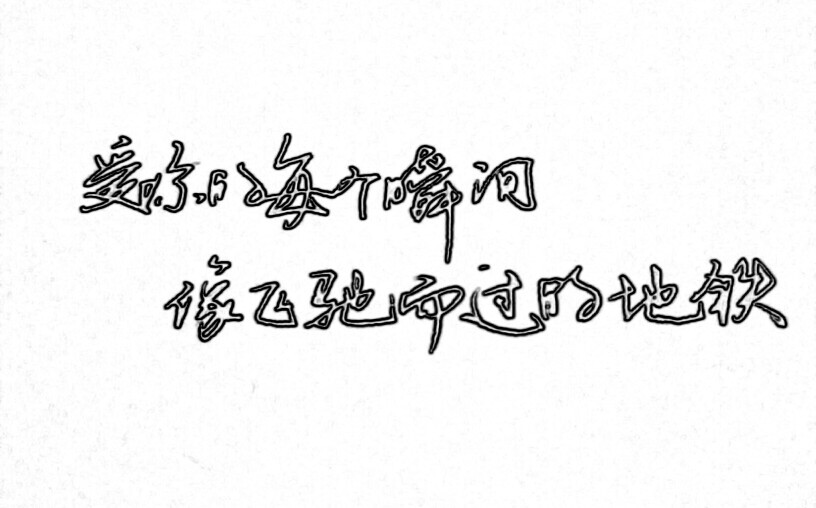 爱你的每个瞬间
像飞驰而过的地铁